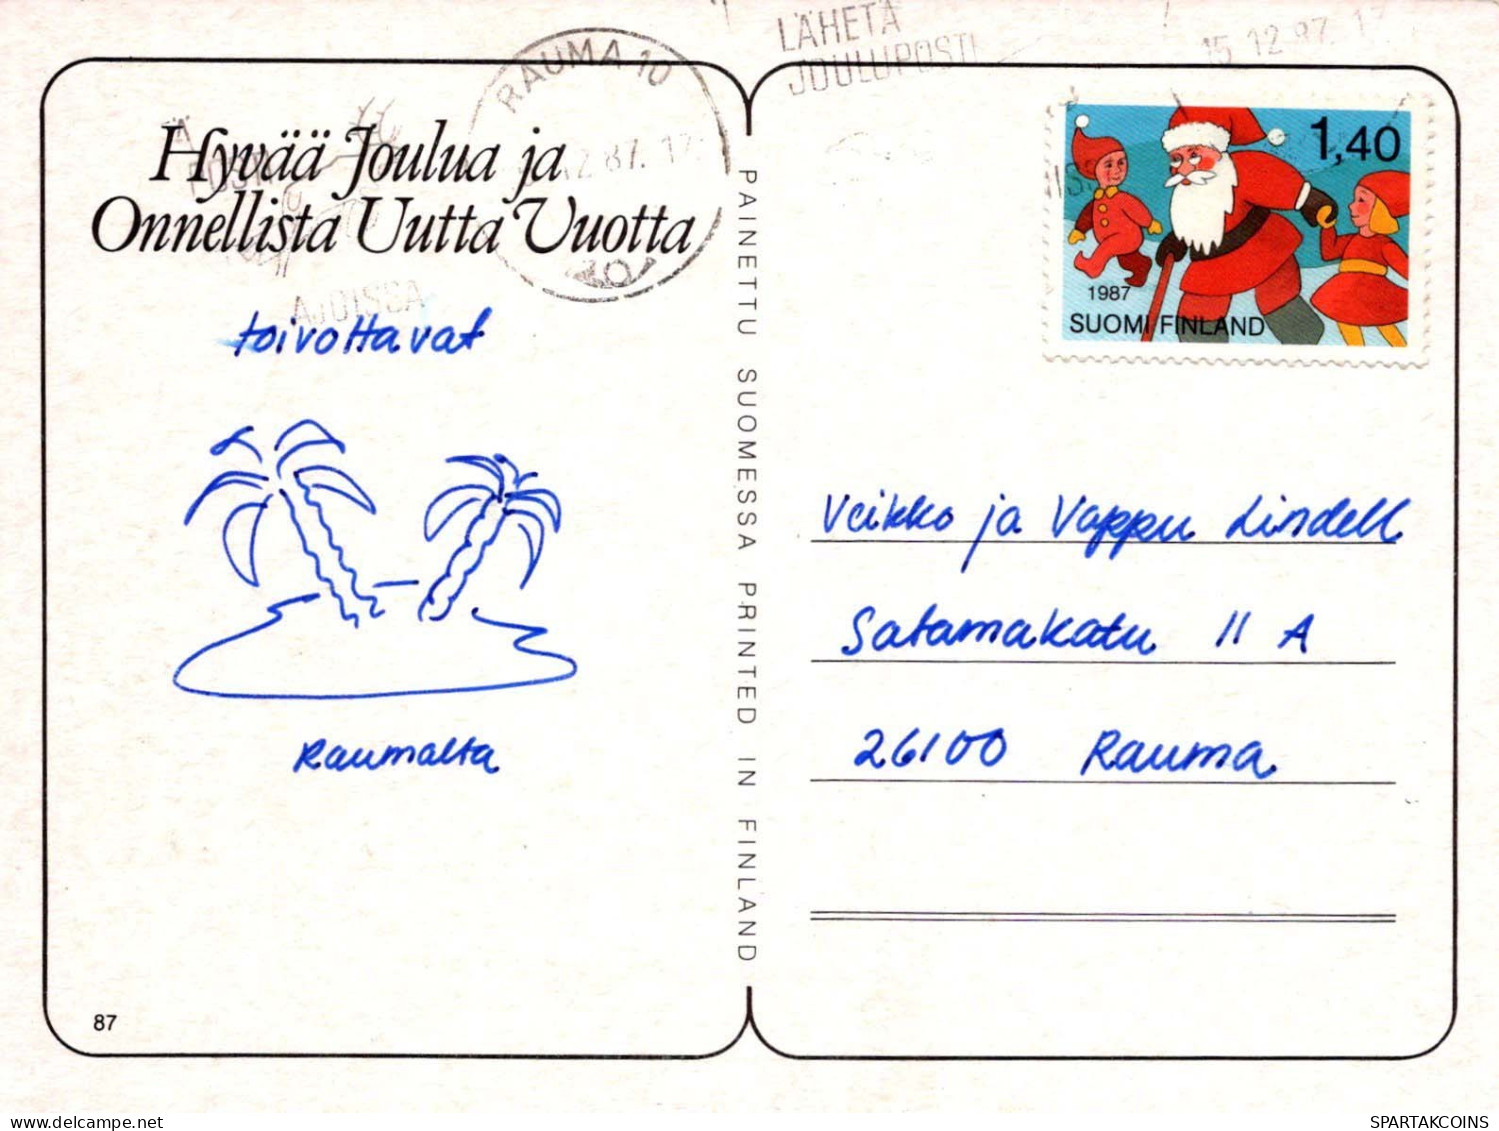 LÄHETÄ
JOULUPOSTI
15.12.87.17
RAUMA 10
Hyvää Joulua ja
Onnellista Uutta Vuotta
AJOISSA
toivottavat
Raumalta
87
PAINETTU SUOMESSA PRINTED IN FINLAND
1,40
1987
SUOMI FINLAND
Veikko ja Vappu Lindell
Satamakatu 11 A
26100 Rauma
SPARTAKCOINS